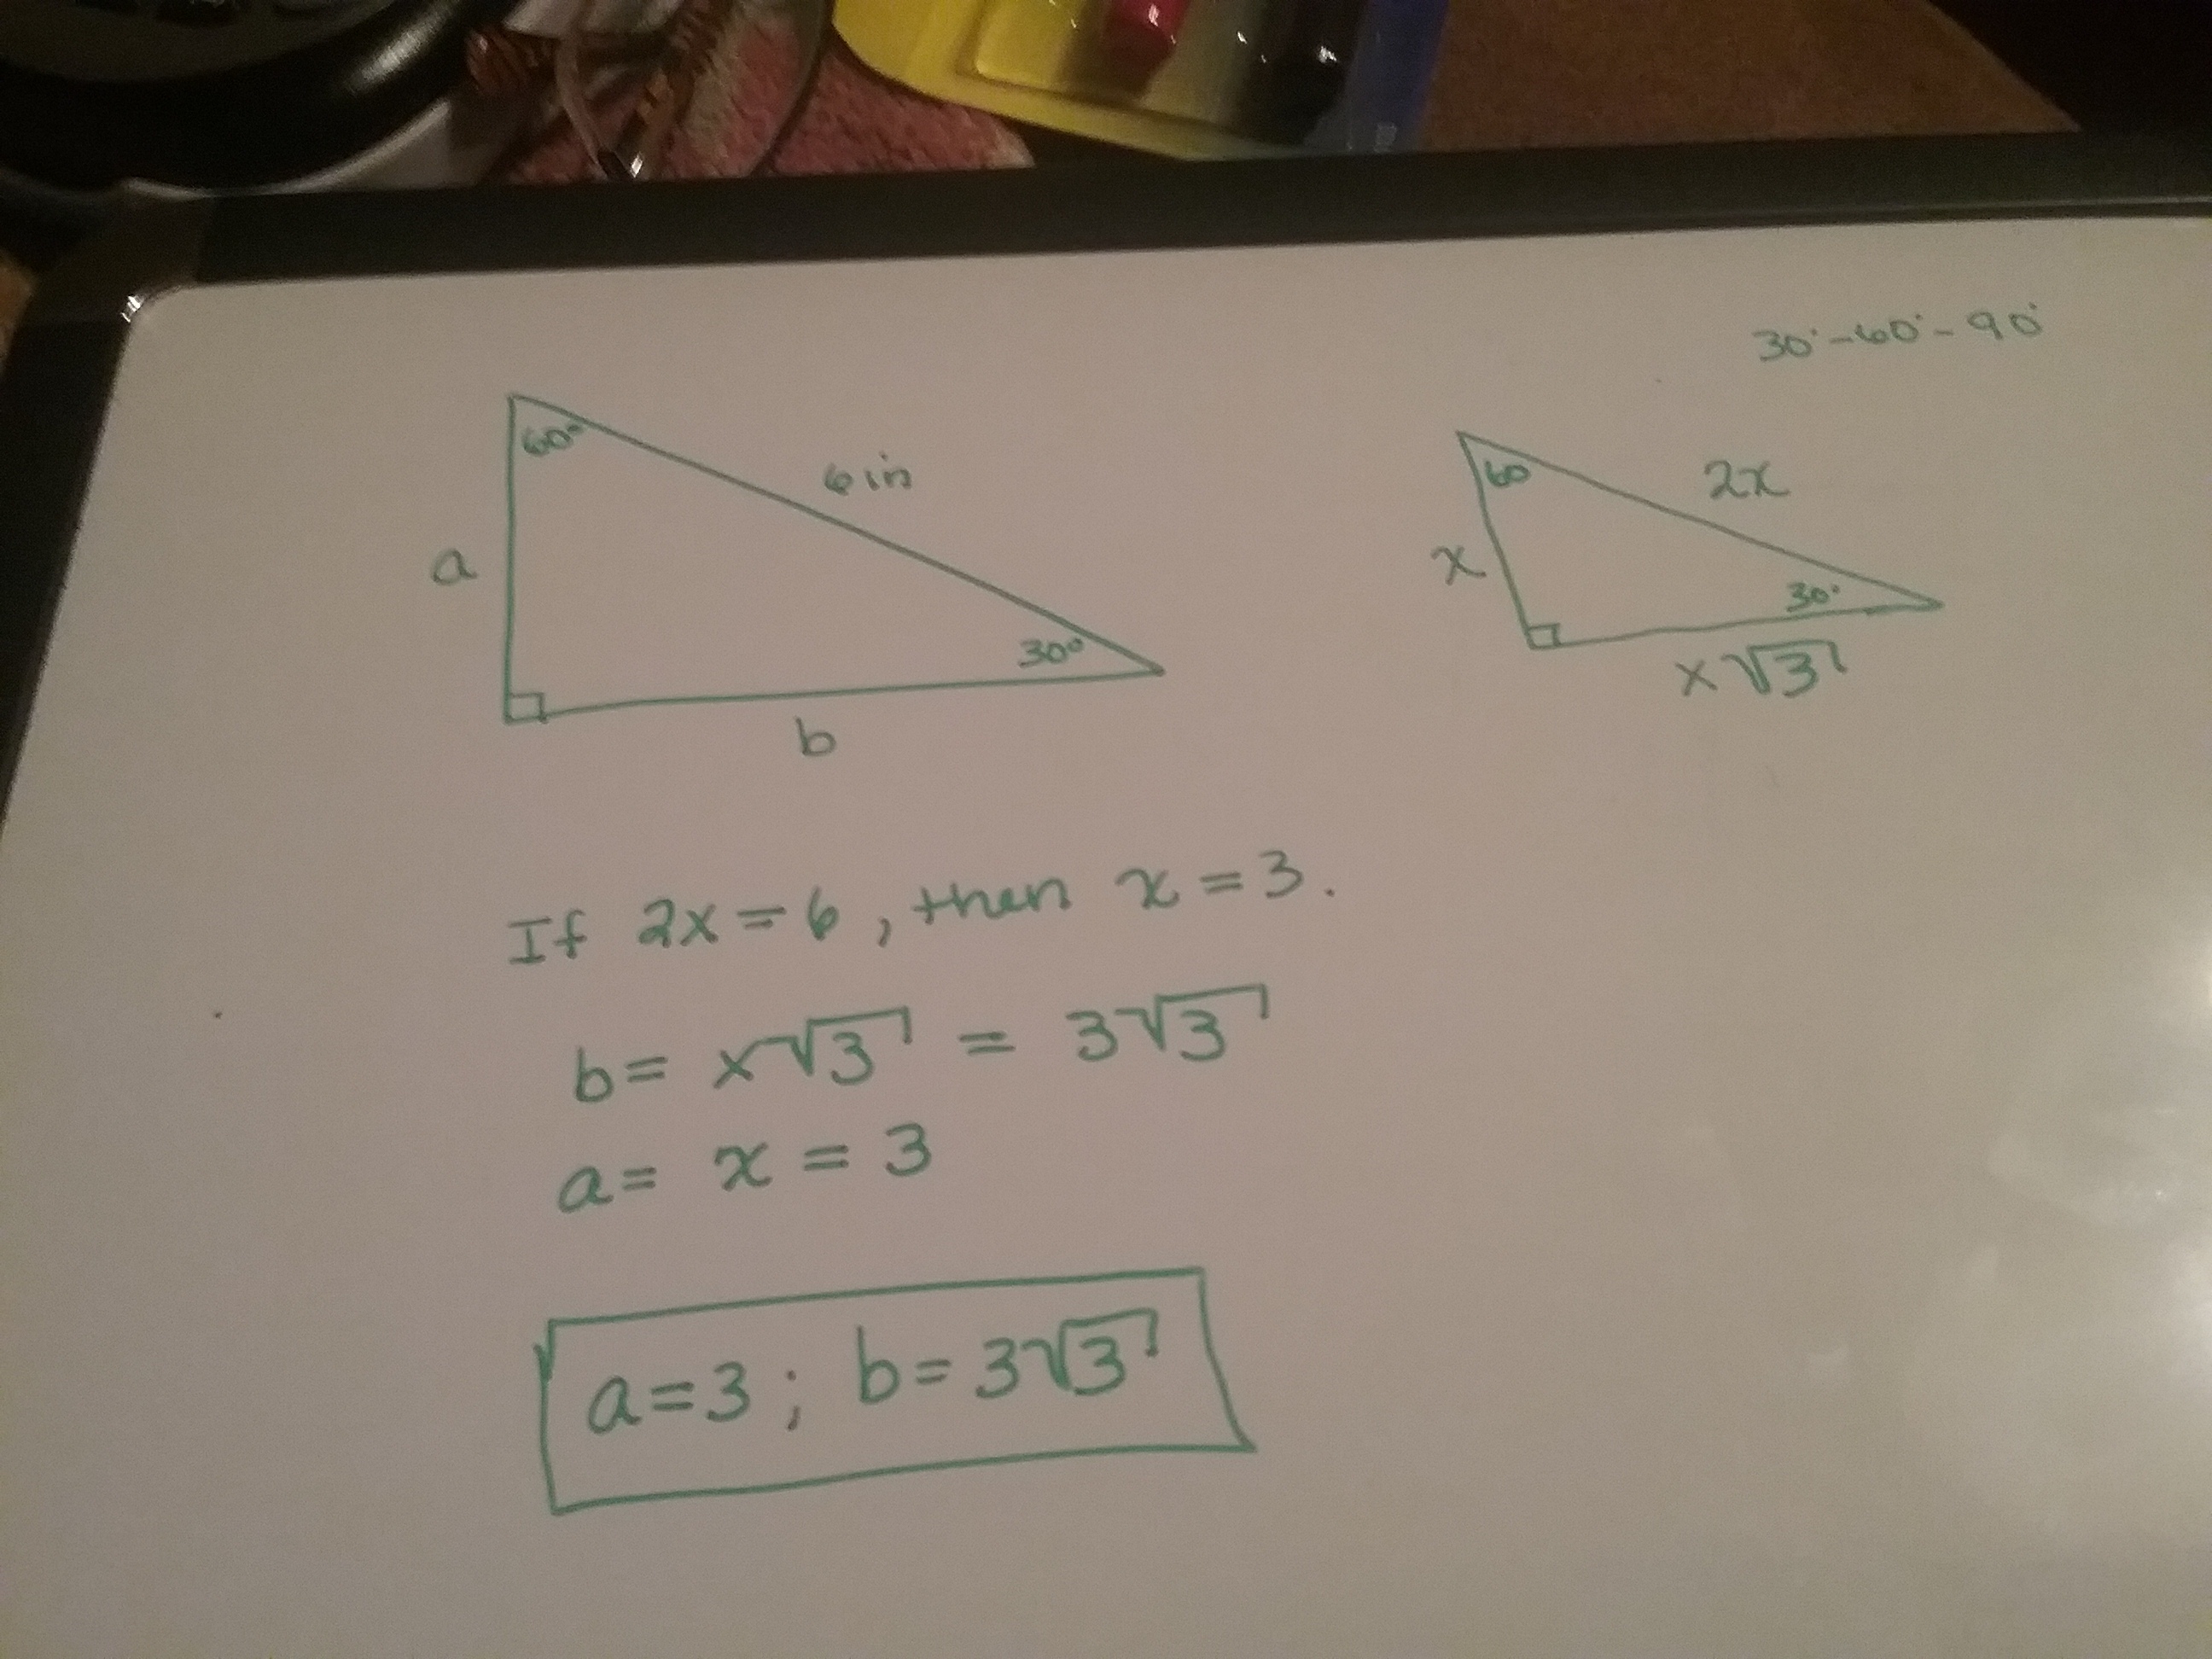 30°-60°-90°
60°
6 in
a
30°
b
60
2x
x
30°
x√3
If 2x = 6, then x = 3.
b = x√3 = 3√3
a = x = 3
a = 3; b = 3√3